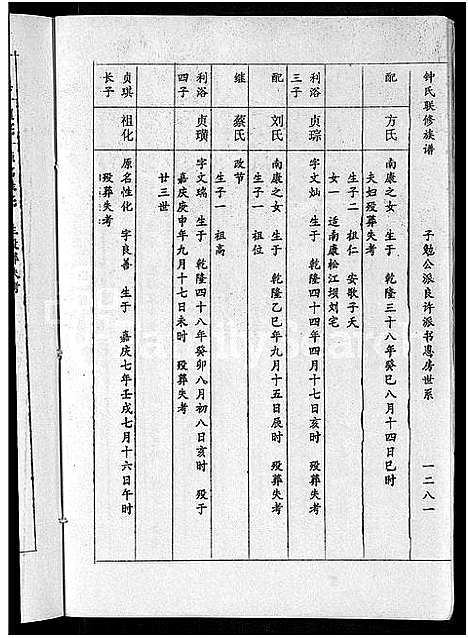 钟氏联修族谱 子勉公派良许派书恩房世系 一二八一
配 方氏 南康之女 生于 乾隆三十八年癸巳八月十四日巳时
夫妇殁葬失考
生子二 祖仁 安歌子夭
女一 适南康松江坝刘宅
利浴三子 贞琮 字文灿 生于 乾隆四十年四月十七日亥时 殁葬失考
配 刘氏 南康之女 生于 乾隆乙巳年九月十五日辰时 殁葬失考
生子一 祖位
继 蔡氏 改节
生子一 祖高
利浴四子 贞璜 字文瑞 生于 乾隆四十八年癸卯八月初八日亥时 殁于
嘉庆庚申年九月十七日未时 殁葬失考
廿三世
贞琪长子 祖化 原名性化 字良善 生于 嘉庆七年壬戌七月十六日午时
殁葬失考